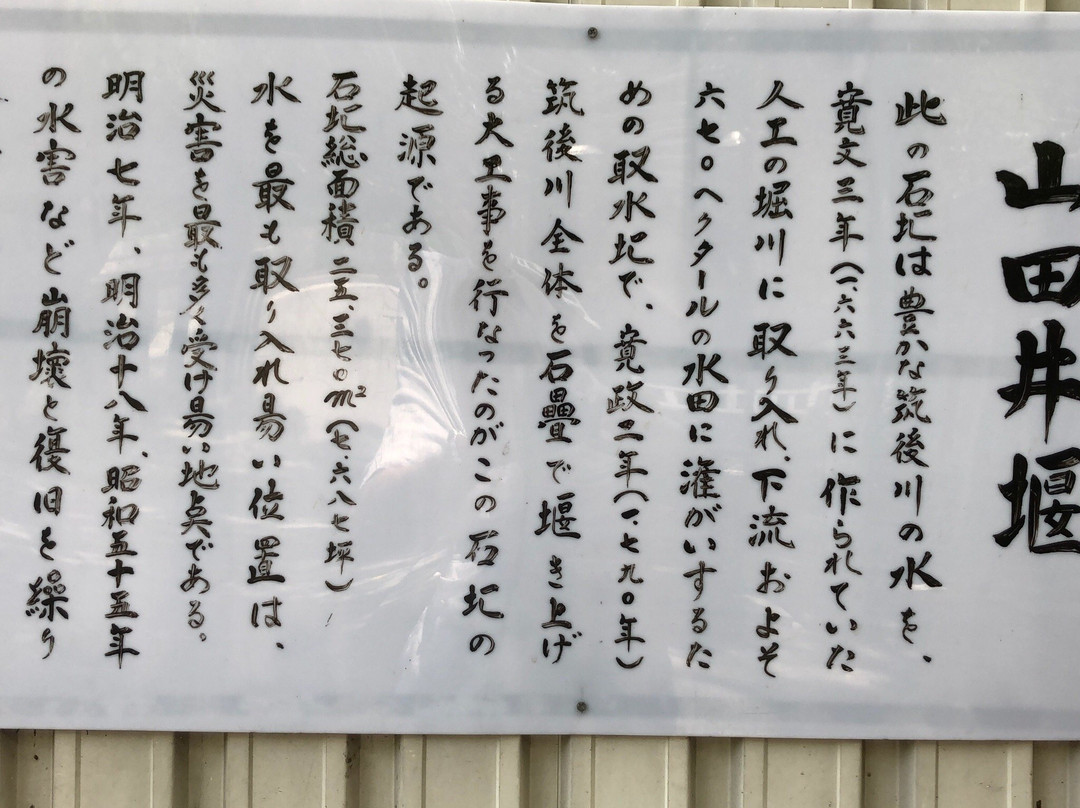 山田井堰
此の石圯は豊かな筑後川の水を、
寛文三年(一、六六三年)に作られていた
人工の堀川に取り入れ、下流およそ
六七〇ヘクタールの水田に潅がいするた
めの取水圯で、寛政二年(一、七九〇年)
筑後川全体を石疊で堰き上げ
る大工事を行なったのがこの石圯の
起源である。
石圯総面積 二五、三七〇m²(七、六八七坪)
水を最も取り入れ易い位置は、
災害を最も多く受け易い地奌である。
明治七年、明治十八年、昭和五十五年
の水害など崩壊と復旧を繰り